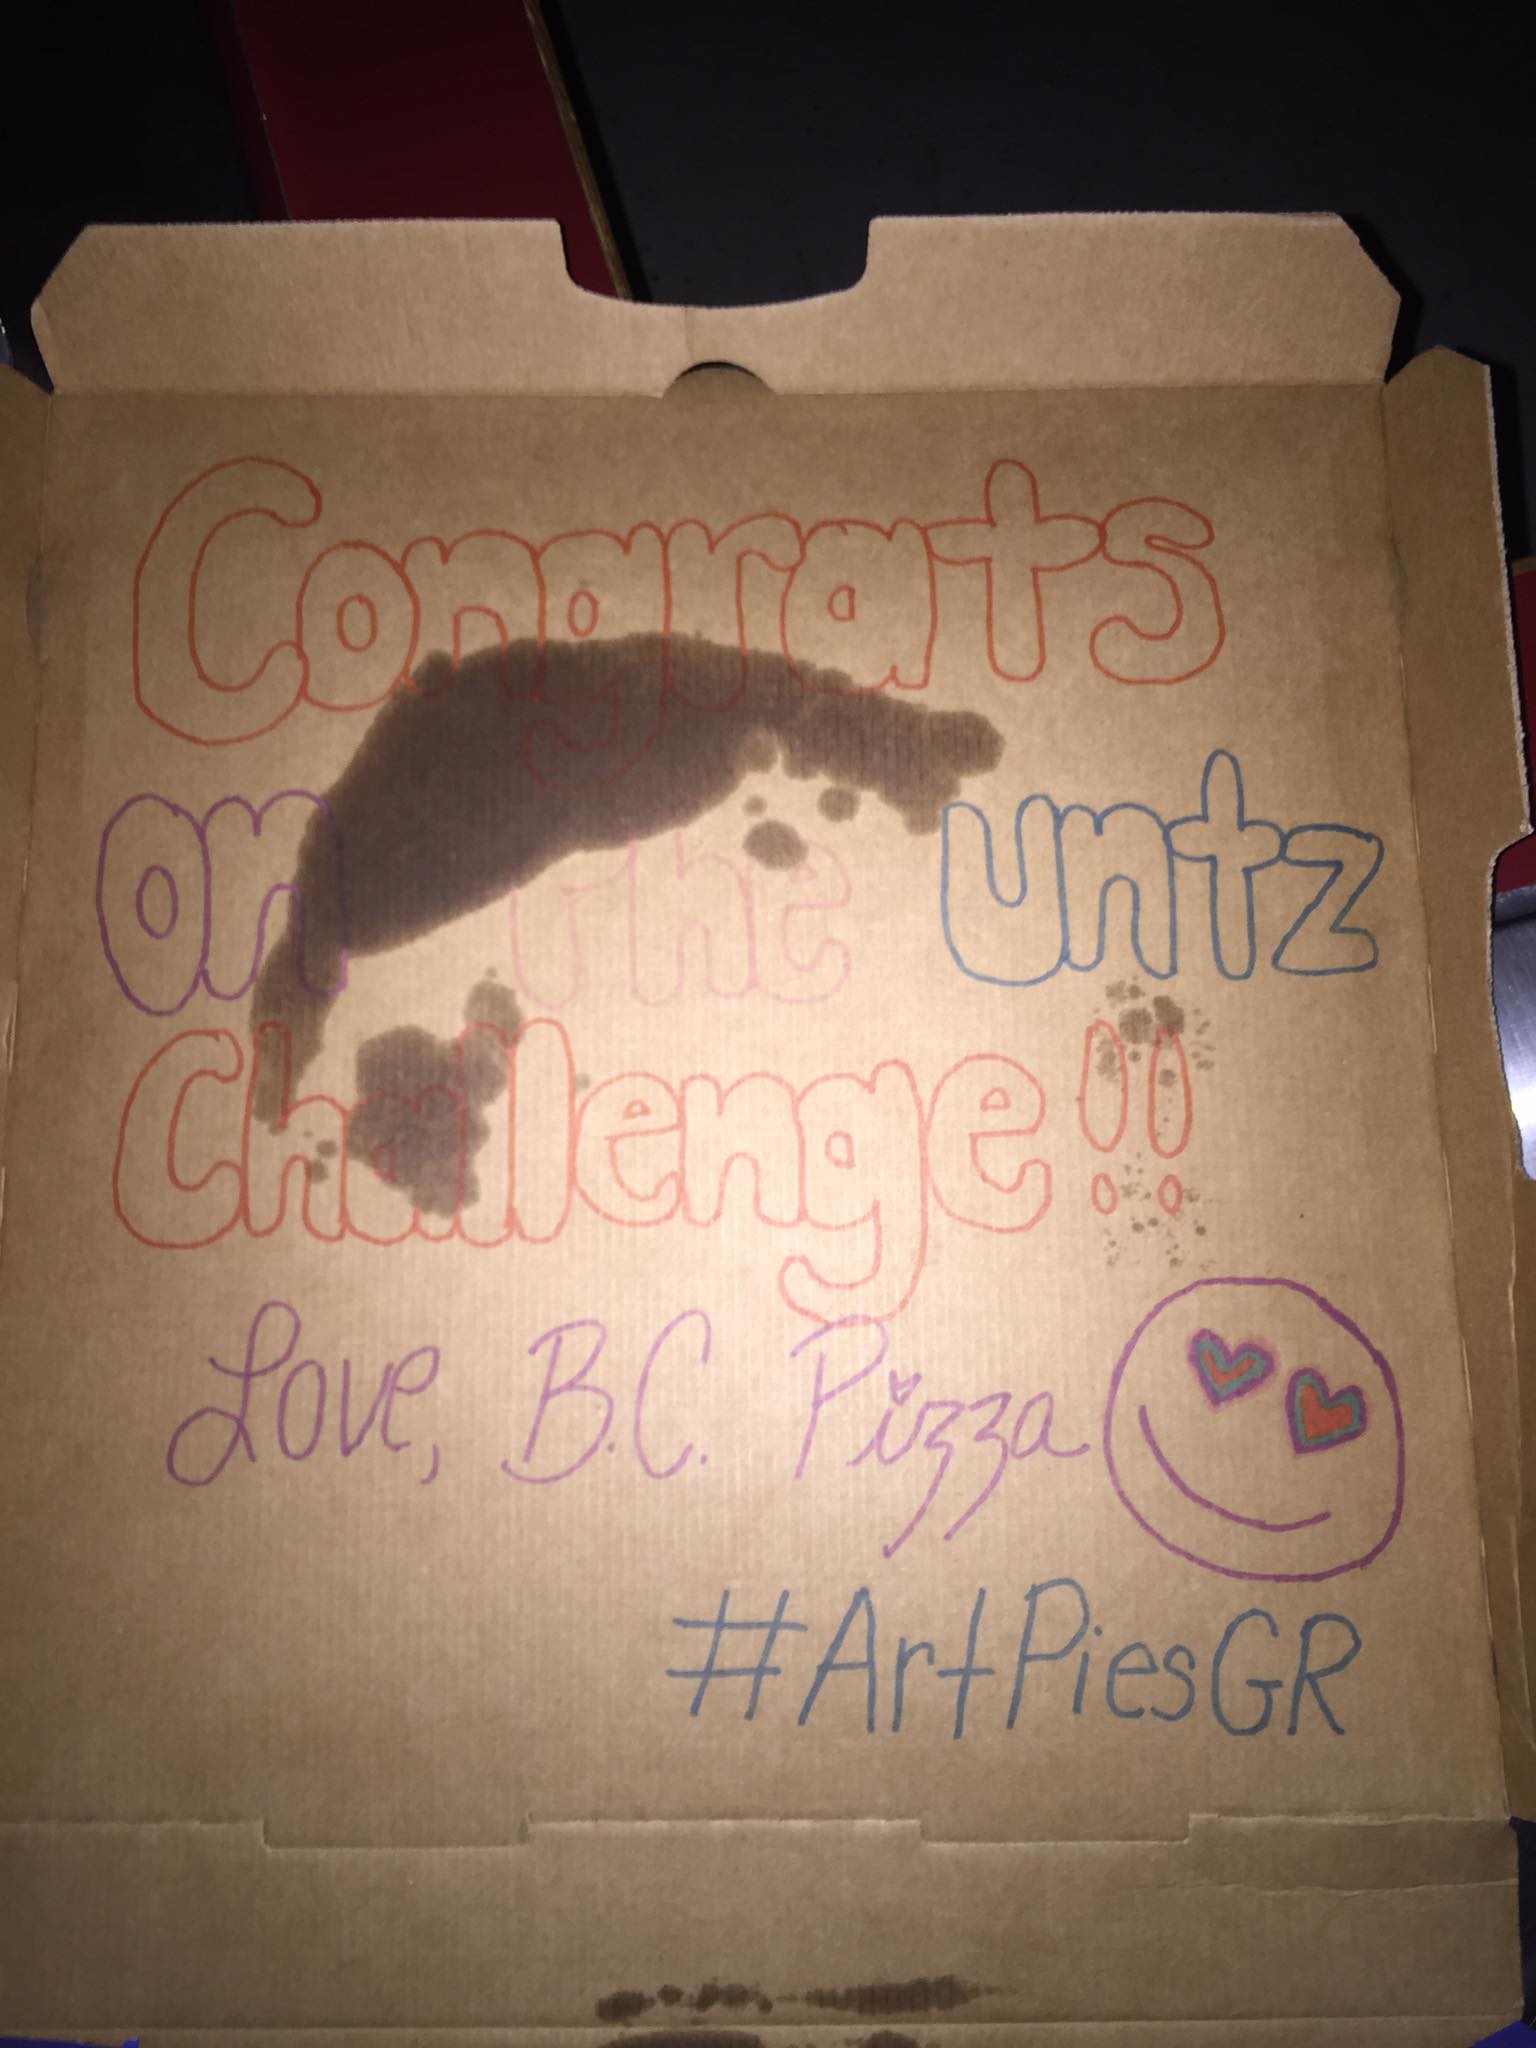 Congrats
on the untz
Challenge!!
Love, B.C. Pizza
#ArtPiesGR